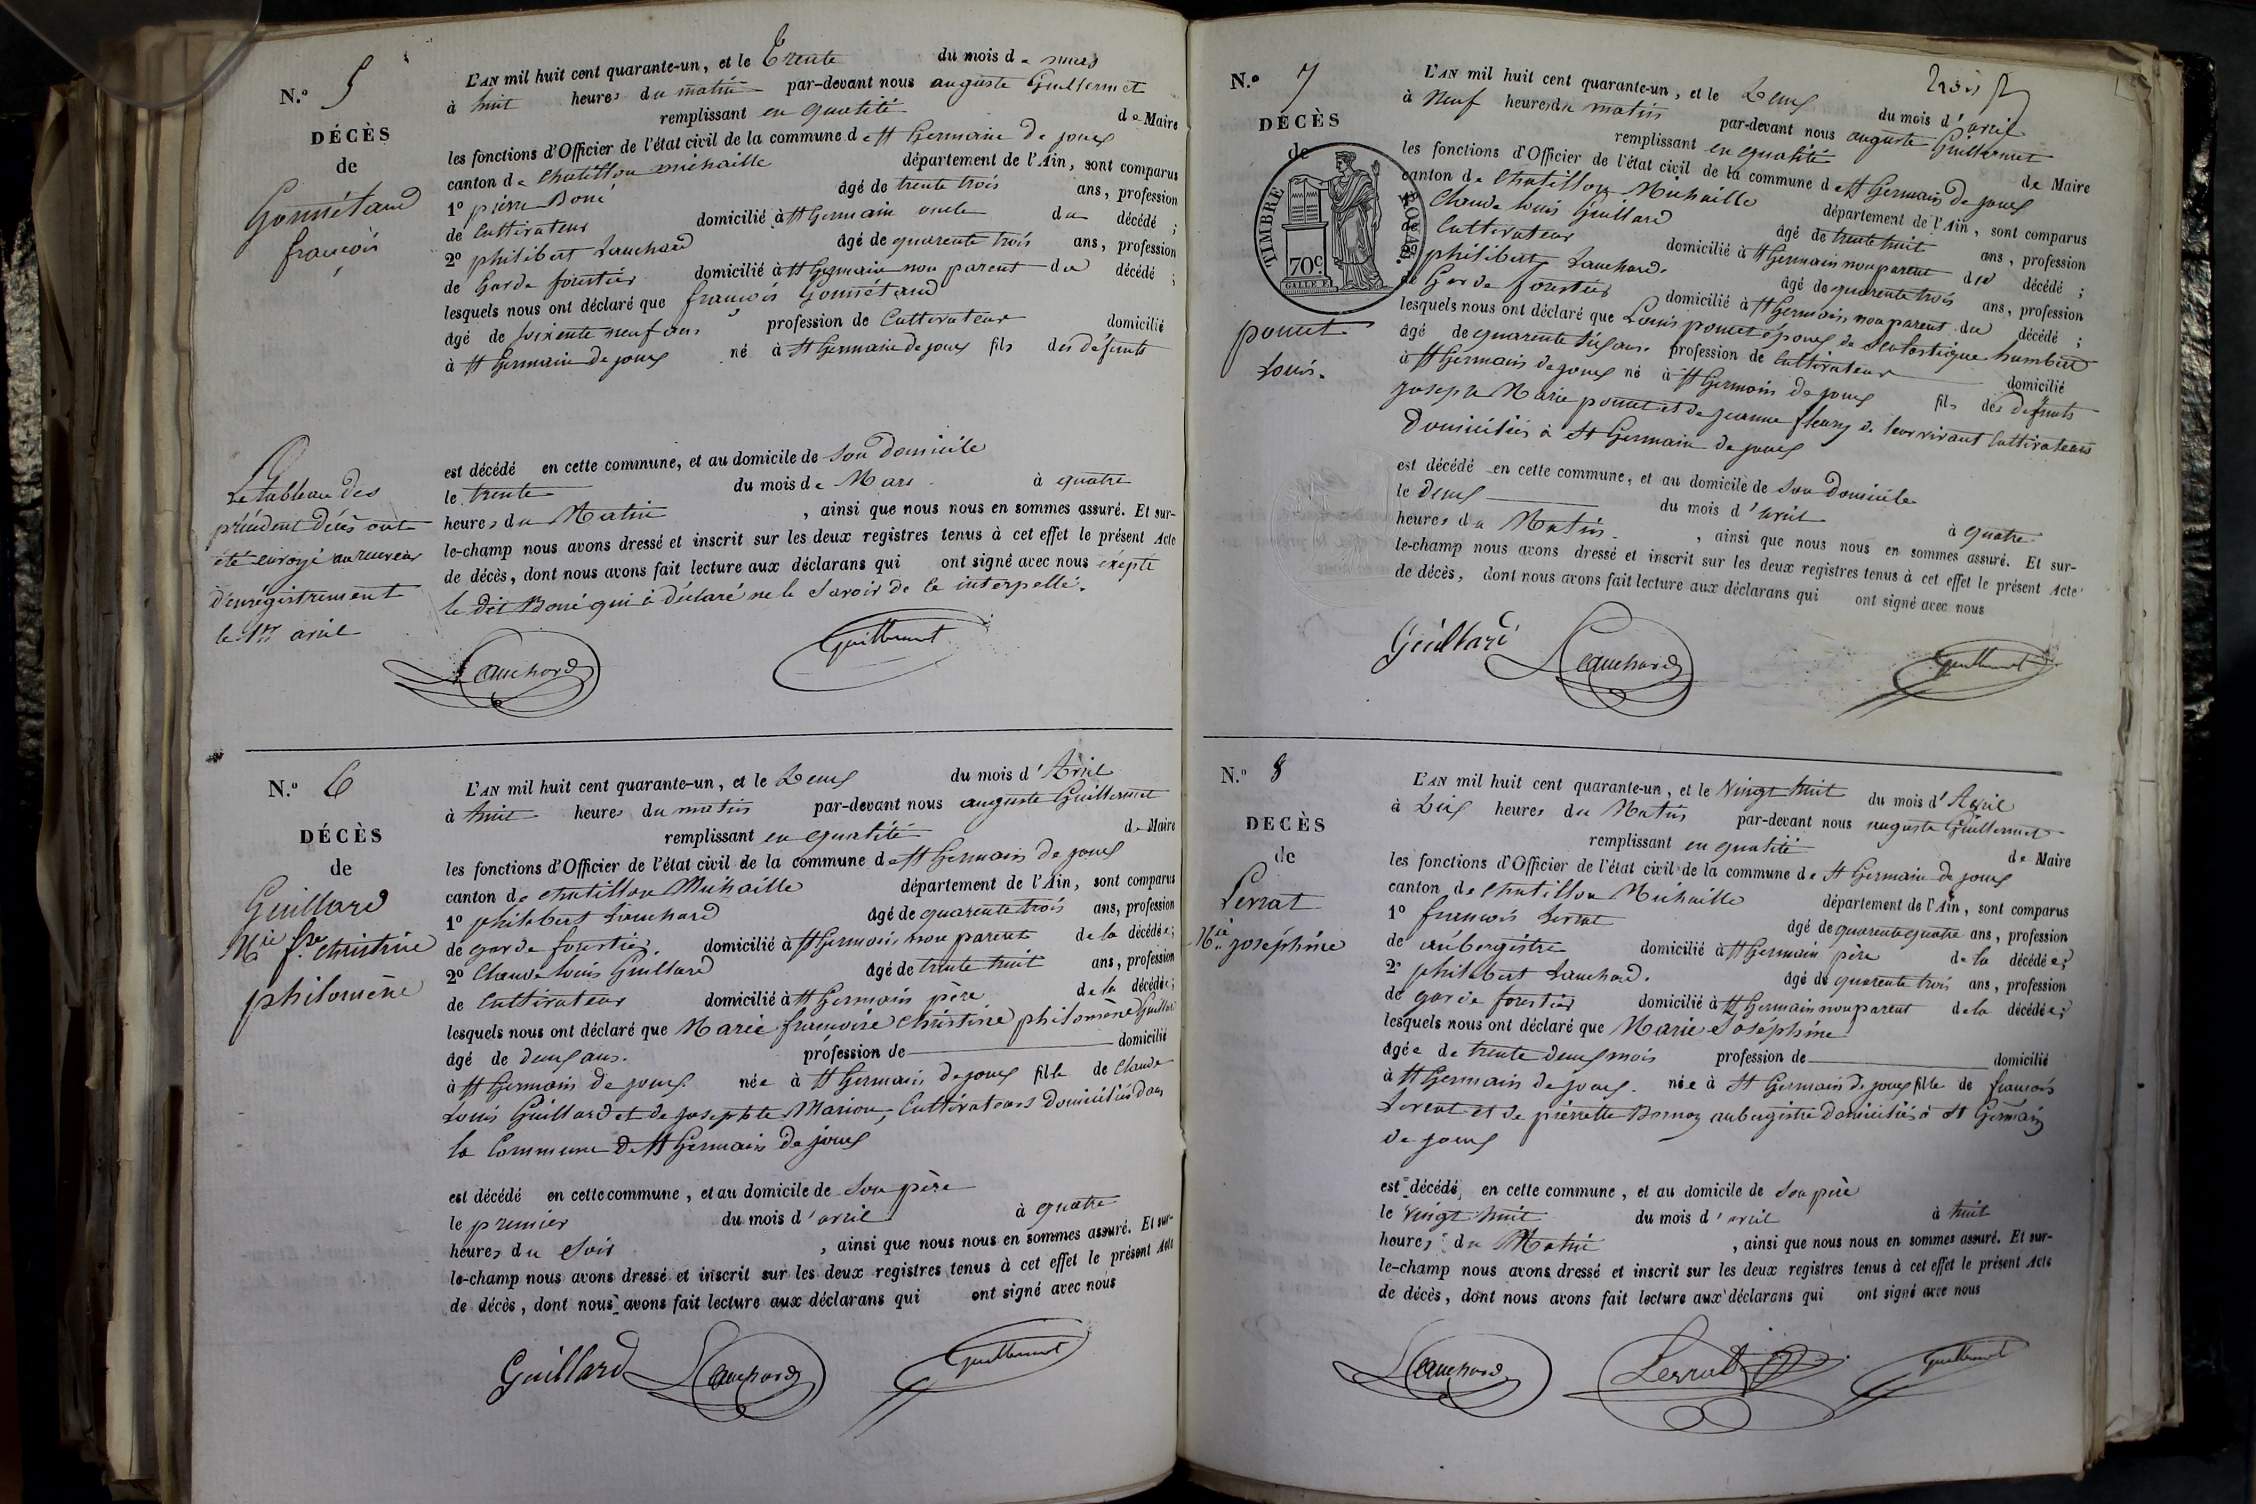 N.º 5
DÉCÈS
de
Gonnétand
françois
L'AN mil huit cent quarante-un, et le Trente du mois de mars
à huit heures du matin par-devant nous auguste Guillermet
remplissant en qualité de Maire
les fonctions d'Officier de l'état civil de la commune de St Germain de joux
canton de Chatillon michaille département de l'Ain, sont comparus
1º pierre Boné âgé de trente trois ans, profession
de Cultivateur domicilié à St Germain oncle du décédé ;
2º philibert Lauchard âgé de quarente trois ans, profession
de Garde forestier domicilié à St Germain non parent du décédé ;
lesquels nous ont déclaré que françois Gonnétand
âgé de soixente neuf ans profession de Cultivateur domicilié
à St Germain de joux né à St Germain de joux fils des défunts
est décédé en cette commune, et au domicile de son domicile
le trente du mois de Mars à quatre
heures du Matin , ainsi que nous nous en sommes assuré. Et sur-
le-champ nous avons dressé et inscrit sur les deux registres tenus à cet effet le présent Acte
de décès, dont nous avons fait lecture aux déclarans qui ont signé avec nous éxépté
le dit Boné qui à déclaré ne le savoir de ce interpellé.
Le tableau des
précédent Décès ont
été envoyé au bureau
d'enrégistrement
le 1er avril
Lauchard Guillermet
N.º 6
DÉCÈS
de
Guillard
Mie fse christine
philomène
L'AN mil huit cent quarante-un, et le Deux du mois d'Avril
à huit heures du matin par-devant nous auguste Guillermet
remplissant en qualité de Maire
les fonctions d'Officier de l'état civil de la commune de St Germain de joux
canton de chatillon Michaille département de l'Ain, sont comparus
1º philibert Lauchard âgé de quarente trois ans, profession
de garde forestier. domicilié à St Germain non parent de la décédée;
2º Claude Louis Guillard âgé de trente huit ans, profession
de Cultivateur domicilié à St Germain père de la décédée;
lesquels nous ont déclaré que Marie françoise Christine philomène Guillard
âgé de deux ans. profession de domicilié
à St Germain de joux née à St Germain de joux fille de Claude
Louis Guillard et de josephte Marion, Cultivateurs domiciliés dans
la Commune de St Germain de joux
est décédé en cette commune, et au domicile de son père
le premier du mois d'avril à quatre
heures du soir , ainsi que nous nous en sommes assuré. Et sur-
le-champ nous avons dressé et inscrit sur les deux registres tenus à cet effet le présent Acte
de décès, dont nous avons fait lecture aux déclarans qui ont signé avec nous
Guillard Lauchard Guillermet
trois
N.º 7
DÉCÈS
de
TIMBRE ROYAL
70c.
poncet
Louis.
L'AN mil huit cent quarante-un, et le Deux du mois d'avril
à Neuf heures du matin par-devant nous auguste Guillermet
remplissant en qualité de Maire
les fonctions d'Officier de l'état civil de la commune de St Germain de joux
canton de Chatillon Michaille département de l'Ain, sont comparus
Claude Louis Guillard âgé de trente huit ans, profession
de Cultivateur domicilié à St Germain non parent du décédé ;
philibert Lauchard. âgé de quarente trois ans, profession
de Garde forestier domicilié à St Germain non parent du décédé ;
lesquels nous ont déclaré que Louis poncet époux de scolastique humbert
âgé de quarente six ans. profession de Cultivateur domicilié
à St Germain de joux né à St Germain de joux fils des défunts
joseph Marie poncet et de jeanne fleury de leur vivant Cultivateurs
Domiciliés à St Germain de joux
est décédé en cette commune, et au domicile de son domicile
le deux du mois d'avril à quatre
heures du Matin. , ainsi que nous nous en sommes assuré. Et sur-
le-champ nous avons dressé et inscrit sur les deux registres tenus à cet effet le présent Acte
de décès, dont nous avons fait lecture aux déclarans qui ont signé avec nous
Guillard Lauchard Guillermet
N.º 8
DÉCÈS
de
Levrat
Mie joséphine
L'AN mil huit cent quarante-un, et le Vingt huit du mois d'Avril
à Dix heures du Matin par-devant nous auguste Guillermet
remplissant en qualité de Maire
les fonctions d'Officier de l'état civil de la commune de St Germain de joux
canton de Chatillon Michaille département de l'Ain, sont comparus
1º françois Levrat âgé de quarente quatre ans, profession
de aubergiste domicilié à St Germain père de la décédée;
2º philibert Lauchard. âgé de quarente trois ans, profession
de garde forestier domicilié à St Germain non parent de la décédée;
lesquels nous ont déclaré que Marie Joséphine
âgée de trente deux mois profession de domicilié
à St Germain de joux. née à St Germain de joux fille de françois
Levrat et de pierrette Bornoz aubergiste domiciliés à St Germain
de joux
est décédé, en cette commune, et au domicile de son père
le Vingt huit du mois d'avril à huit
heures du Matin , ainsi que nous nous en sommes assuré. Et sur-
le-champ nous avons dressé et inscrit sur les deux registres tenus à cet effet le présent Acte
de décès, dont nous avons fait lecture aux déclarans qui ont signé avec nous
Lauchard Levrat Guillermet